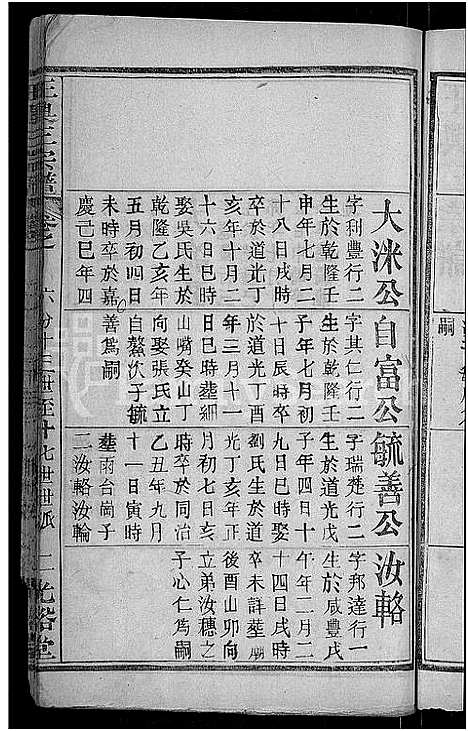 大洣公
字利豐行二
生於乾隆壬
申年七月二
十八日戌時
卒於道光丁
亥年十月二
十六日巳時
娶吳氏生於
乾隆乙亥年
五月初四日
未時卒於嘉
慶己巳年四
自富公
字其仁行二
生於乾隆壬
子年七月初
十日辰時卒
於道光丁酉
年三月十一
日巳時𦵏細
山嘴癸山丁
向娶張氏立
自鰲次子毓
善爲嗣
毓善公
字瑞楚行二
生於道光戊
子年四月十
九日巳時娶
劉氏生於道
光丁亥年正
月初七日亥
時卒於同治
乙丑年九月
十一日寅時
𦵏雨台崗子
二汝輅汝輪
汝輅
字邦達行一
生於咸豐戊
午年二月二
十四日戌時
卒未詳𦵏廟
後酉山卯向
立弟汝穗之
子心仁爲嗣
王氏三宗譜
卷之
六分十三世至十七世世派
二
光裕堂
嗣